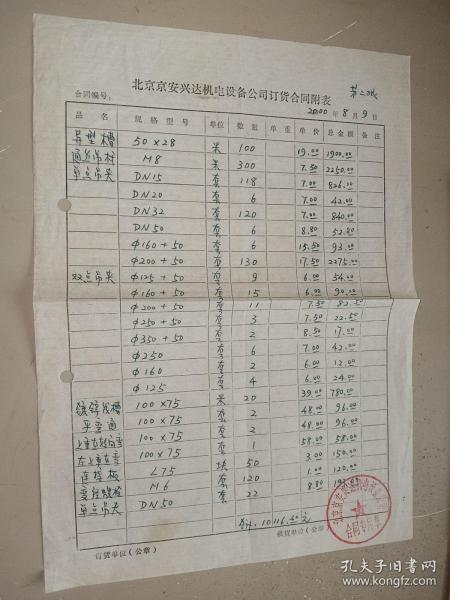 北京京安兴达机电设备公司订货合同附表
第二次
合同编号: 2000年8月9日
品名 规格型号 单位 数量 单重 单价 总金额 备注
异型槽 50×28 米 100 19.00 1900.00
通丝吊杆 M8 米 300 7.50 2250.00
单点吊夹 DN15 套 118 7.00 826.00
DN20 套 6 7.00 42.00
DN32 套 120 7.00 840.00
DN50 套 6 8.80 52.80
Φ160+50 套 6 15.50 93.00
Φ200+50 套 130 17.50 2275.00
双点吊夹 Φ125+50 套 9 6.00 54.00
Φ160+50 套 15 6.00 90.00
Φ200+50 套 11 7.50 82.50
Φ250+50 套 3 7.50 22.50
Φ350+50 套 2 8.50 17.00
Φ250 套 6 7.00 42.00
Φ160 套 2 6.00 12.00
Φ125 套 4 6.00 24.00
镀锌线槽 100×75 米 20 39.00 780.00
100×75 套 2 48.00 96.00
100×75 套 2 48.00 96.00
100×75 套 1 58.00 58.00
连接板 L75 块 50 3.00 150.00
M6 套 120 1.00 120.00
单点吊夹 DN50 套 22 8.80
合计: 10116.40元
订货单位(公章) 供货单位(公章)
合同专用章
孔夫子旧书网
book.kongfz.com